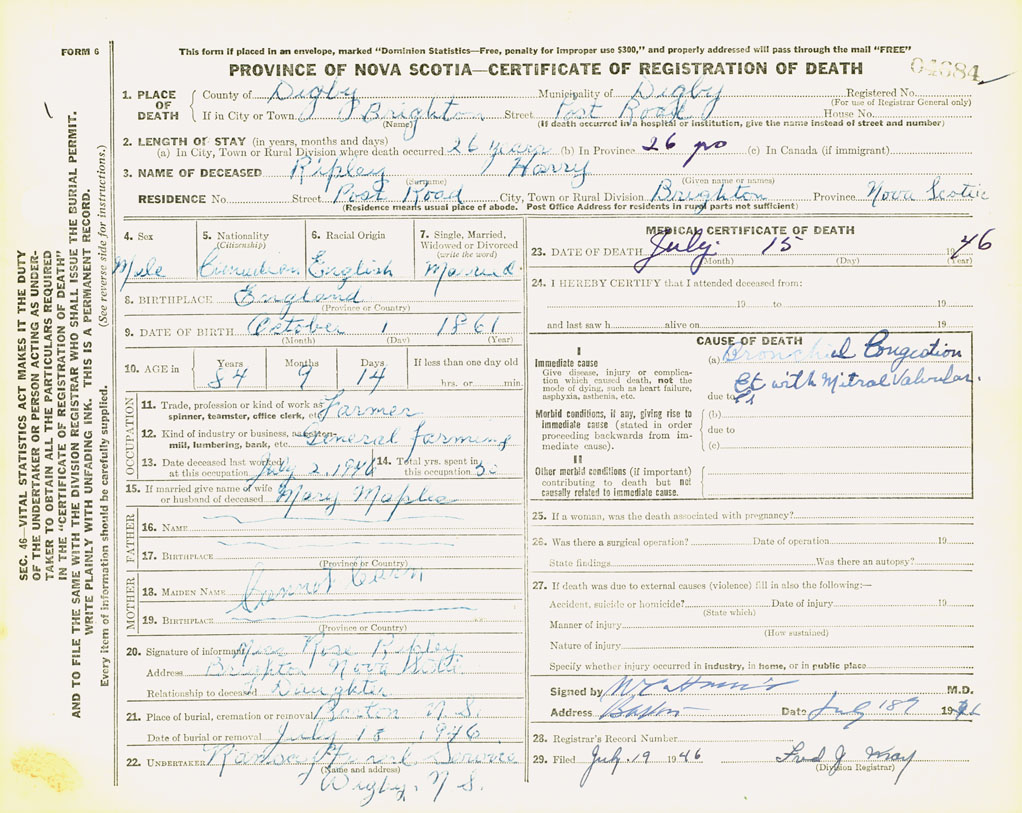 FORM 6
This form if placed in an envelope, marked "Dominion Statistics—Free, penalty for improper use $300," and properly addressed will pass through the mail "FREE"
PROVINCE OF NOVA SCOTIA—CERTIFICATE OF REGISTRATION OF DEATH
04684
1. PLACE OF DEATH
County of Digby Municipality of Digby Registered No.
(For use of Registrar General only)
If in City or Town Brighton Street Post Road House No.
(Name) (If death occurred in a hospital or institution, give the name instead of street and number)
2. LENGTH OF STAY (in years, months and days)
(a) In City, Town or Rural Division where death occurred 26 years (b) In Province 26 (c) In Canada (if immigrant)
3. NAME OF DECEASED Ripley Harry
(Surname) (Given name or names)
RESIDENCE No. Street Post Road City, Town or Rural Division Brighton Province Nova Scotia
(Residence means usual place of abode. Post Office Address for residents in rural parts not sufficient)
4. Sex 5. Nationality (Citizenship) 6. Racial Origin 7. Single, Married, Widowed or Divorced (write the word)
Male Canadian English Married
8. BIRTHPLACE England
(Province or Country)
9. DATE OF BIRTH October 1 1861
(Month) (Day) (Year)
10. AGE in Years Months Days If less than one day old
84 9 14 hrs. or min.
OCCUPATION
11. Trade, profession or kind of work as spinner, teamster, office clerk, etc. Farmer
12. Kind of industry or business, as cotton-mill, lumbering, bank, etc. General farming
13. Date deceased last worked at this occupation July 2, 1946 14. Total yrs. spent in this occupation
15. If married give name of wife or husband of deceased Mary Maples
FATHER
16. NAME
17. BIRTHPLACE
(Province or Country)
MOTHER
18. MAIDEN NAME
19. BIRTHPLACE
(Province or Country)
20. Signature of informant Rose Ripley
Address Brighton Nova Scotia
Relationship to deceased Daughter
21. Place of burial, cremation or removal N.S.
Date of burial or removal July 18 1946
22. UNDERTAKER Service
(Name and address)
Digby, N.S.
MEDICAL CERTIFICATE OF DEATH
23. DATE OF DEATH July 15 1946
(Month) (Day) (Year)
24. I HEREBY CERTIFY that I attended deceased from:
19 to 19
and last saw h alive on 19
CAUSE OF DEATH
I
Immediate cause
Give disease, injury or complication which caused death, not the mode of dying, such as heart failure, asphyxia, asthenia, etc.
(a) Bronchial Congestion
with Mitral Valvular
due to
Morbid conditions, if any, giving rise to immediate cause (stated in order proceeding backwards from immediate cause).
(b)
due to
(c)
II
Other morbid conditions (if important) contributing to death but not causally related to immediate cause.
25. If a woman, was the death associated with pregnancy?
26. Was there a surgical operation? Date of operation 19
State findings Was there an autopsy?
27. If death was due to external causes (violence) fill in also the following:—
Accident, suicide or homicide? Date of injury 19
(State which)
Manner of injury
(How sustained)
Nature of injury
Specify whether injury occurred in industry, in home, or in public place
Signed by M.D.
Address Date July 18 1946
28. Registrar's Record Number
29. Filed July 19 1946 Fred J
(Division Registrar)
SEC. 46—VITAL STATISTICS ACT MAKES IT THE DUTY
OF THE UNDERTAKER OR PERSON ACTING AS UNDER-
TAKER TO OBTAIN ALL THE PARTICULARS REQUIRED
IN THE "CERTIFICATE OF REGISTRATION OF DEATH"
AND TO FILE THE SAME WITH THE DIVISION REGISTRAR WHO SHALL ISSUE THE BURIAL PERMIT.
WRITE PLAINLY WITH UNFADING INK. THIS IS A PERMANENT RECORD.
Every item of information should be carefully supplied. (See reverse side for instructions.)